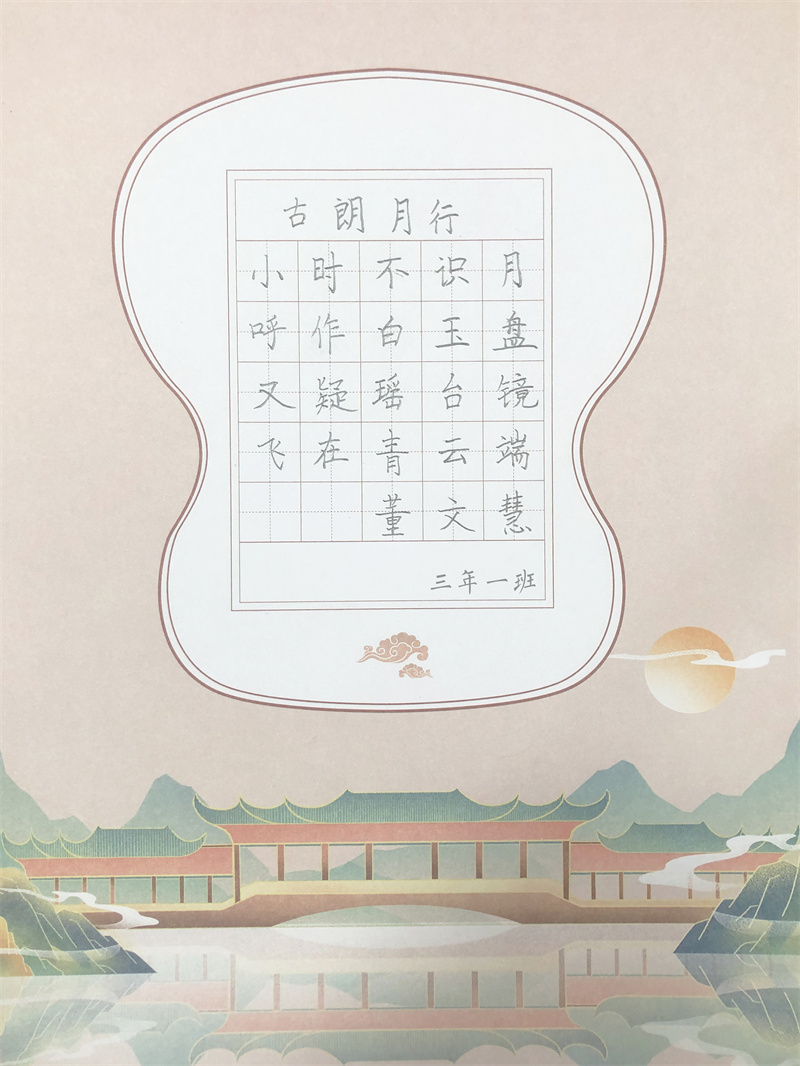 古朗月行
小时不识月
呼作白玉盘
又疑瑶台镜
飞在青云端
董文慧
三年一班